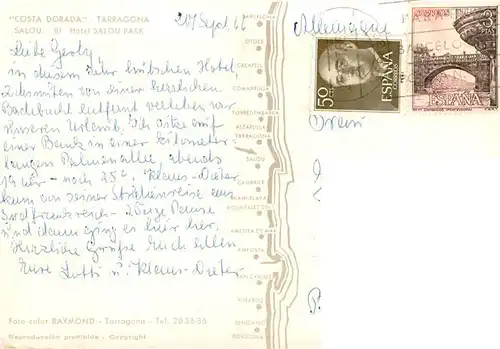 "COSTA DORADA" TARRAGONA
SALOU. 8) Hotel SALOU PARK
20. Sept. 66
Allemagne
Liebe Gerty
in diesem sehr hübschen Hotel,
2 Minuten von einer herrlichen
Badebucht entfernt verleben wir
unseren Urlaub. Ich sitze auf
einer Bank in einer kilometer-
langen Palmenallee, abends
19 Uhr - noch 25°. Klaus-Dieter
kam von seiner Studienreise aus
Südfrankreich - 2 Tage Pause
und dann ging es hier her.
Herzliche Grüße Euch allen
Eure Lotti u. Klaus-Dieter
Foto color RAYMOND - Tarragona - Tel. 20 26 35
Reproducción prohibida - Copyright
BARCELONA
SITGES
CALAFELL
COMARRUGA
TORREDEMBARRA
ALTAFULLA
TARRAGONA
SALOU
CAMBRILS
MIAMI PLAYA
HOSPITALET DEL
AMETLLA DE MAR
AMPOSTA
SAN CARLOS
VINAROZ
BENICARLO
PEÑISCOLA
50
ESPAÑA
CORREOS
3
PTAS
ESPAÑA
BARCELONA
Frau